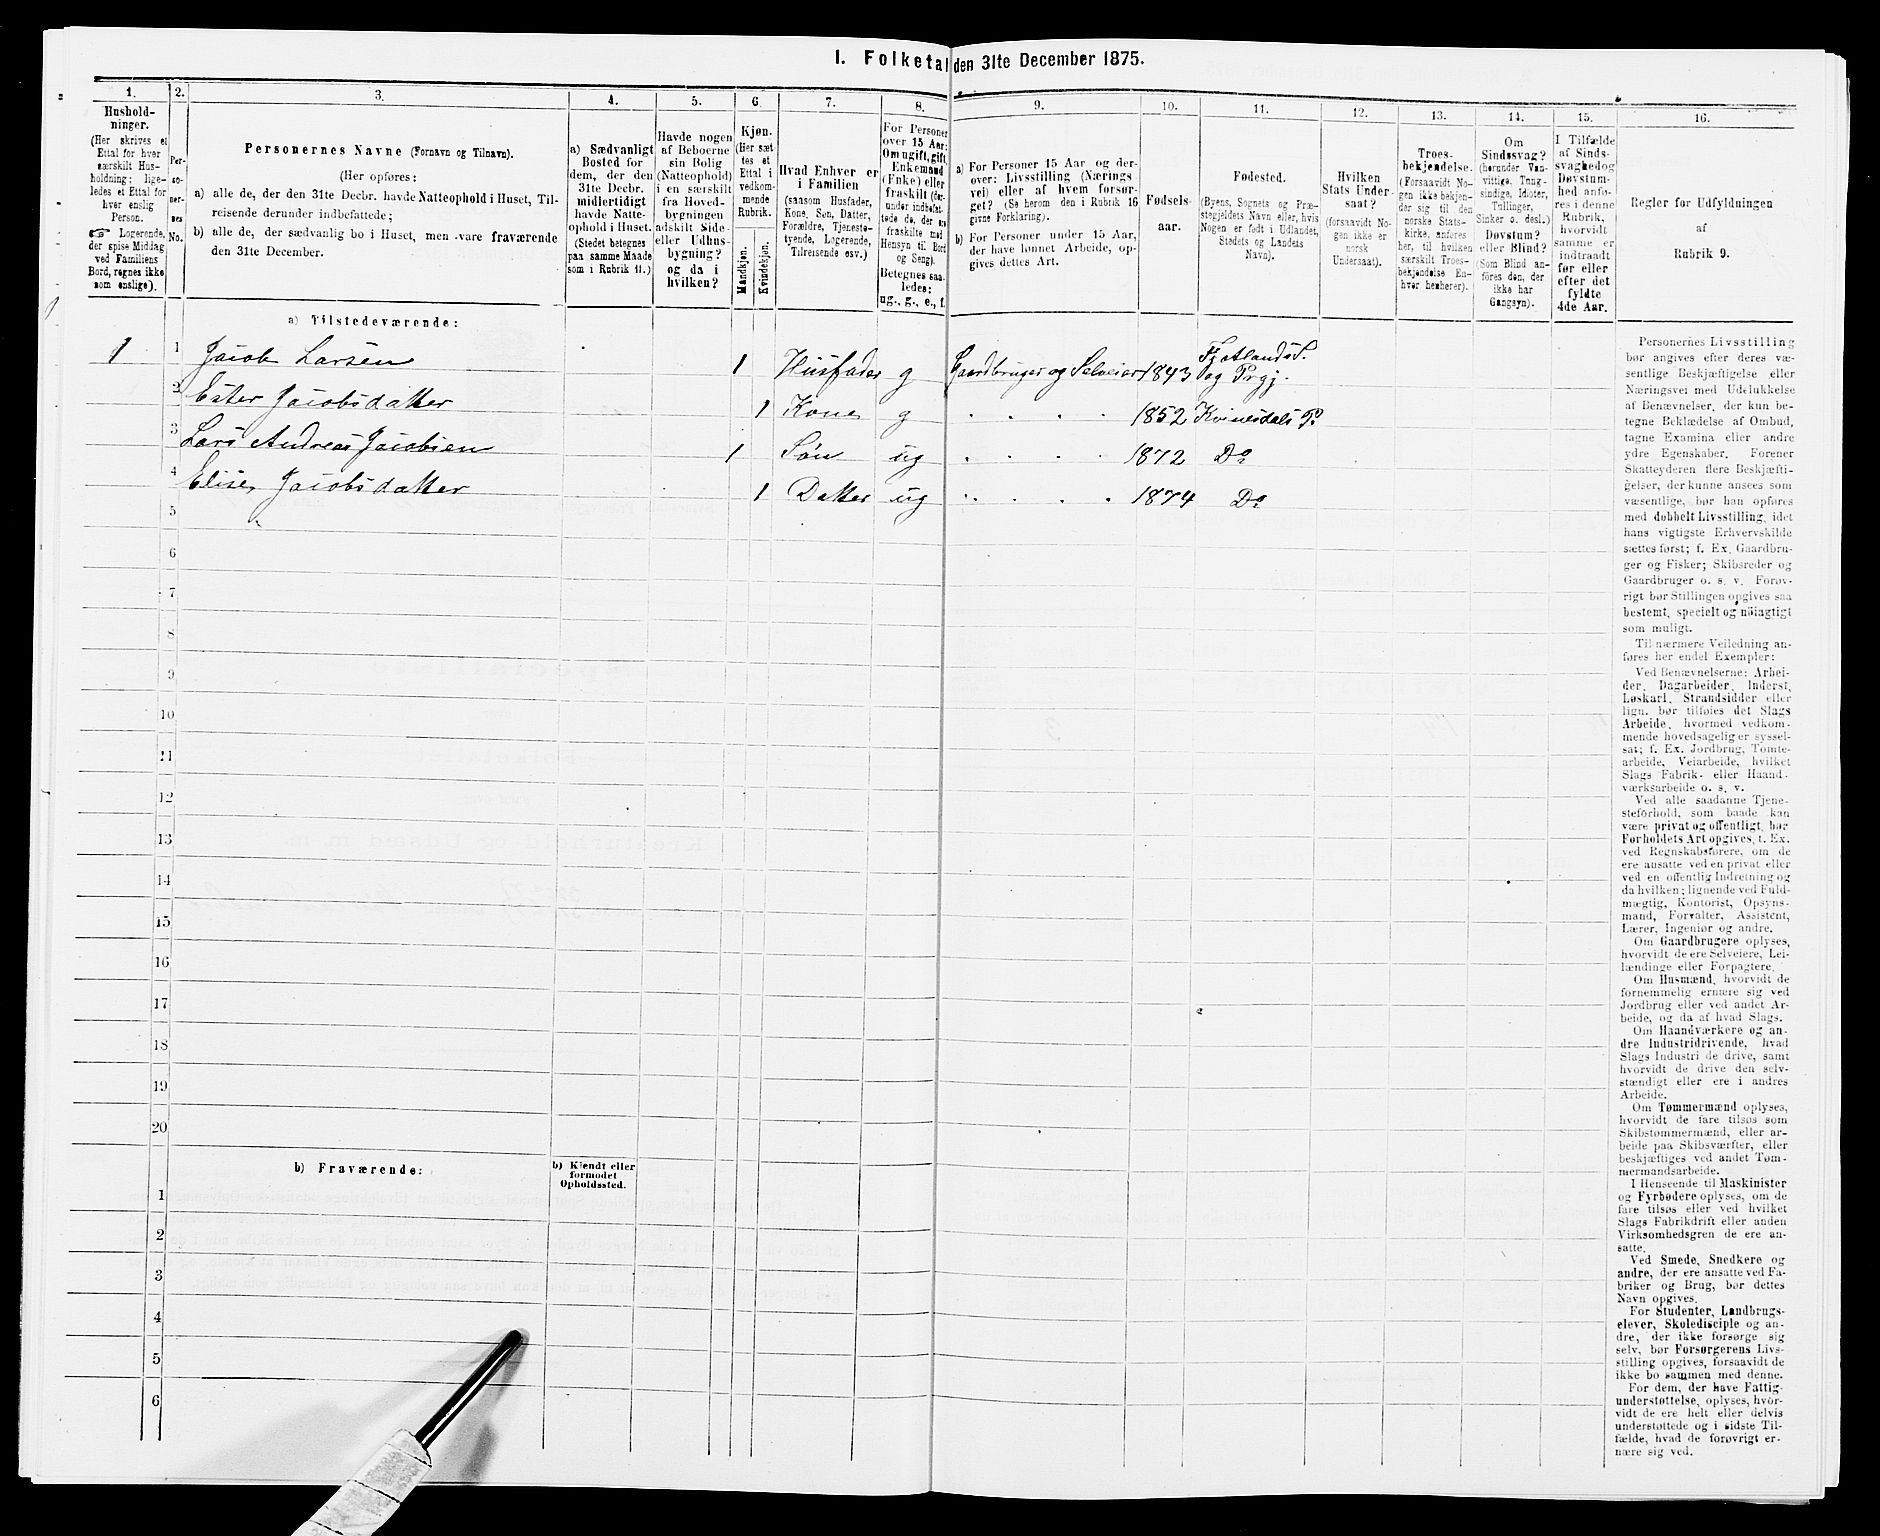 I. Folketal den 31te December 1875.
1. 2. 3. 4. 5. 6. 7. 8. 9. 10. 11. 12. 13. 14. 15. 16.
Hushold-
ninger.
(Her skrives et
Ettal for hver
særskilt Hus-
holdning; lige-
ledes et Ettal for
hver enslig
Person.
☞ Logerende,
der spise Middag
ved Familiens
Bord, regnes ikke
som enslige).
Per-
so-
ner-
nes
No.
Personernes Navne (Fornavn og Tilnavn).
(Her opføres:
a) alle de, der den 31te Decbr. havde Natteophold i Huset, Til-
reisende derunder indbefattede;
b) alle de, der sædvanlig bo i Huset, men vare fraværende
den 31te December.
a) Sædvanligt
Bosted for
dem, der den
31te Decbr.
midlertidigt
havde Natte-
ophold i Huset.
(Stedet betegnes
paa samme Maade
som i Rubrik 11.)
Havde nogen
af Beboerne
sin Bolig
(Natteophold)
i en særskilt
fra Hoved-
bygningen
adskilt Side-
eller Udhus-
bygning?
og da i
hvilken?
Kjøn.
(Her sæt
tes et
Ettal i
vedkom-
mende
Rubrik.
Mandkjøn.
Kvindekjøn.
Hvad Enhver er
i Familien
(saasom Husfader,
Kone, Søn, Datter,
Forældre, Tjenestø-
tyende, Logerende,
Tilreisende osv.)
For Personer
over 15 Aar:
Om ugift, gift,
Enkemand
(Enke) eller
fraskilt (der-
under indbefat-
tede de, der ere
fraskilte med
Hensyn til Bord
og Seng).
Betegnes saa-
ledes:
ug., g., e., f.
a) For Personer 15 Aar og der-
over: Livsstilling (Nærings
vei) eller af hvem forsør-
get? (Se herom den i Rubrik 16
givne Forklaring).
b) For Personer under 15 Aar,
der have lønnet Arbeide, op-
gives dettes Art.
Fødsels-
aar.
Fødested.
(Byens, Sognets og Præ-
stegjeldets Navn eller, hvis
Nogen er født i Udlandet,
Stedets og Landets
Navn).
Hvilken
Stats Under-
saat?
(forsaavidt No-
gen ikke er
norsk
Undersaat).
Troes-
bekjendelse.
(Forsaavidt No-
gen ikke bekjen-
der sig til den
norske Stats-
kirke, anføres
her, til hvilken
særskilt Troes-
bekjendelse En-
hver henhører).
Om
Sindssvag?
(herunder Van-
vittige, Tung-
sindige, Idioter,
Tullinger,
Sinker o. desl.)
Døvstum?
eller Blind?
(Som Blind an-
føres den, der
ikke har
Gangsyn).
I Tilfælde
af Sinds-
svaghed og
Døvstum-
hed anfø-
res i denne
Rubrik,
hvorvidt
samme er
indtraadt
før eller
efter det
fyldte
4de Aar.
Regler for Udfyldningen
af
Rubrik 9.
a) Tilstedeværende:
1 1 Jacob Larsen 1 Husfader g Gaardbruger og Selveier 1843 Fjotlands S. og Prgj.
2 Ester Jacobsdatter 1 Kone g . . . . 1852 Kvinesdals P.
3 Lars Andreas Jacobsen 1 Søn ug . . . . 1872 Do
4 Elise Jacobsdatter 1 Datter ug . . . . 1874 Do
5
6
7
8
9
10
11
12
13
14
15
16
17
18
19
20
b) Fraværende:
b) Kjendt eller
formodet
Opholdssted.
1
2
3
4
5
6
Personernes Livsstilling
bør angives efter deres væ-
sentlige Beskjæftigelse eller
Næringsvei med Udelukkelse
af Benævnelser, der kun be-
tegne Beklædelse af Ombud,
tagne Examina eller andre
ydre Egenskaber. Forener
Skatteyderen flere Beskjæfti-
gelser, der kunne ansees som
væsentlige, bør han opføres
med dobbelt Livsstilling, idet
hans vigtigste Erhvervskilde
sættes først; f. Ex. Gaardbru-
ger og Fisker; Skibsreder og
Gaardbruger o. s. v. Forøv-
rigt bør Stillingen opgives saa
bestemt, specielt og nøiagtigt
som muligt.
Til nærmere Veiledning an-
føres her endel Exempler:
Ved Benævnelserne: Arbei-
der, Dagarbeider, Inderst,
Løskarl, Strandsidder eller
lign. bør tilføies det Slags
Arbeide, hvormed vedkom-
mende hovedsagelig er syssel-
sat; f. Ex. Jordbrug, Tomte-
arbeide, Veiarbeide, hvilket
Slags Fabrik- eller Haand-
værksarbeide o. s. v.
Ved alle saadanne Tjene-
steforhold, som baade kan
være privat og offentligt, bør
Forholdets Art opgives, t. Ex.
ved Regnskabsførere, om de
ere ansatte ved en privat eller
ved en offentlig Indretning og
da hvilken; lignende ved Fuld-
mægtig, Kontorist, Opsyns-
mand, Forvalter, Assistent,
Lærer, Ingeniør og andre.
Om Gaardbrugere oplyses,
hvorvidt de ere Selveiere, Lei-
lændinge eller Forpagtere.
Om Husmænd, hvorvidt de
fornemmelig ernære sig ved
Jordbrug eller ved andet Ar-
beide, og da af hvad Slags.
Om Haandværkere og an-
dre Industridrivende, hvad
Slags Industri de drive, samt
hvorvidt de drive den selv-
stændigt eller ere i andres
Arbeide.
Om Tømmermænd oplyses,
hvorvidt de fare tilsøs som
Skibstømmermænd, eller ar-
beide paa Skibsværfter, eller
beskjæftiges ved andet Tøm-
mermandsarbeide.
I Henseende til Maskinister
og Fyrbødere oplyses, om de
fare tilsøs eller ved hvilket
Slags Fabrikdrift eller anden
Virksomhedsgren de ere an-
satte.
Ved Smede, Snedkere og
andre, der ere ansatte ved Fa-
briker og Brug, bør dettes
Navn opgives.
For Studenter, Landbrugs-
elever, Skoledisciple og an-
dre, der ikke forsørge sig
selv, bør Forsørgerens Livs-
stilling opgives, forsaavidt de
ikke bo sammen med denne.
For dem, der have Fattig-
understøttelse, oplyses, hvor-
vidt de ere helt eller delvis
understøttede og i sidste Til-
fælde, hvad de forøvrigt er-
nære sig ved.